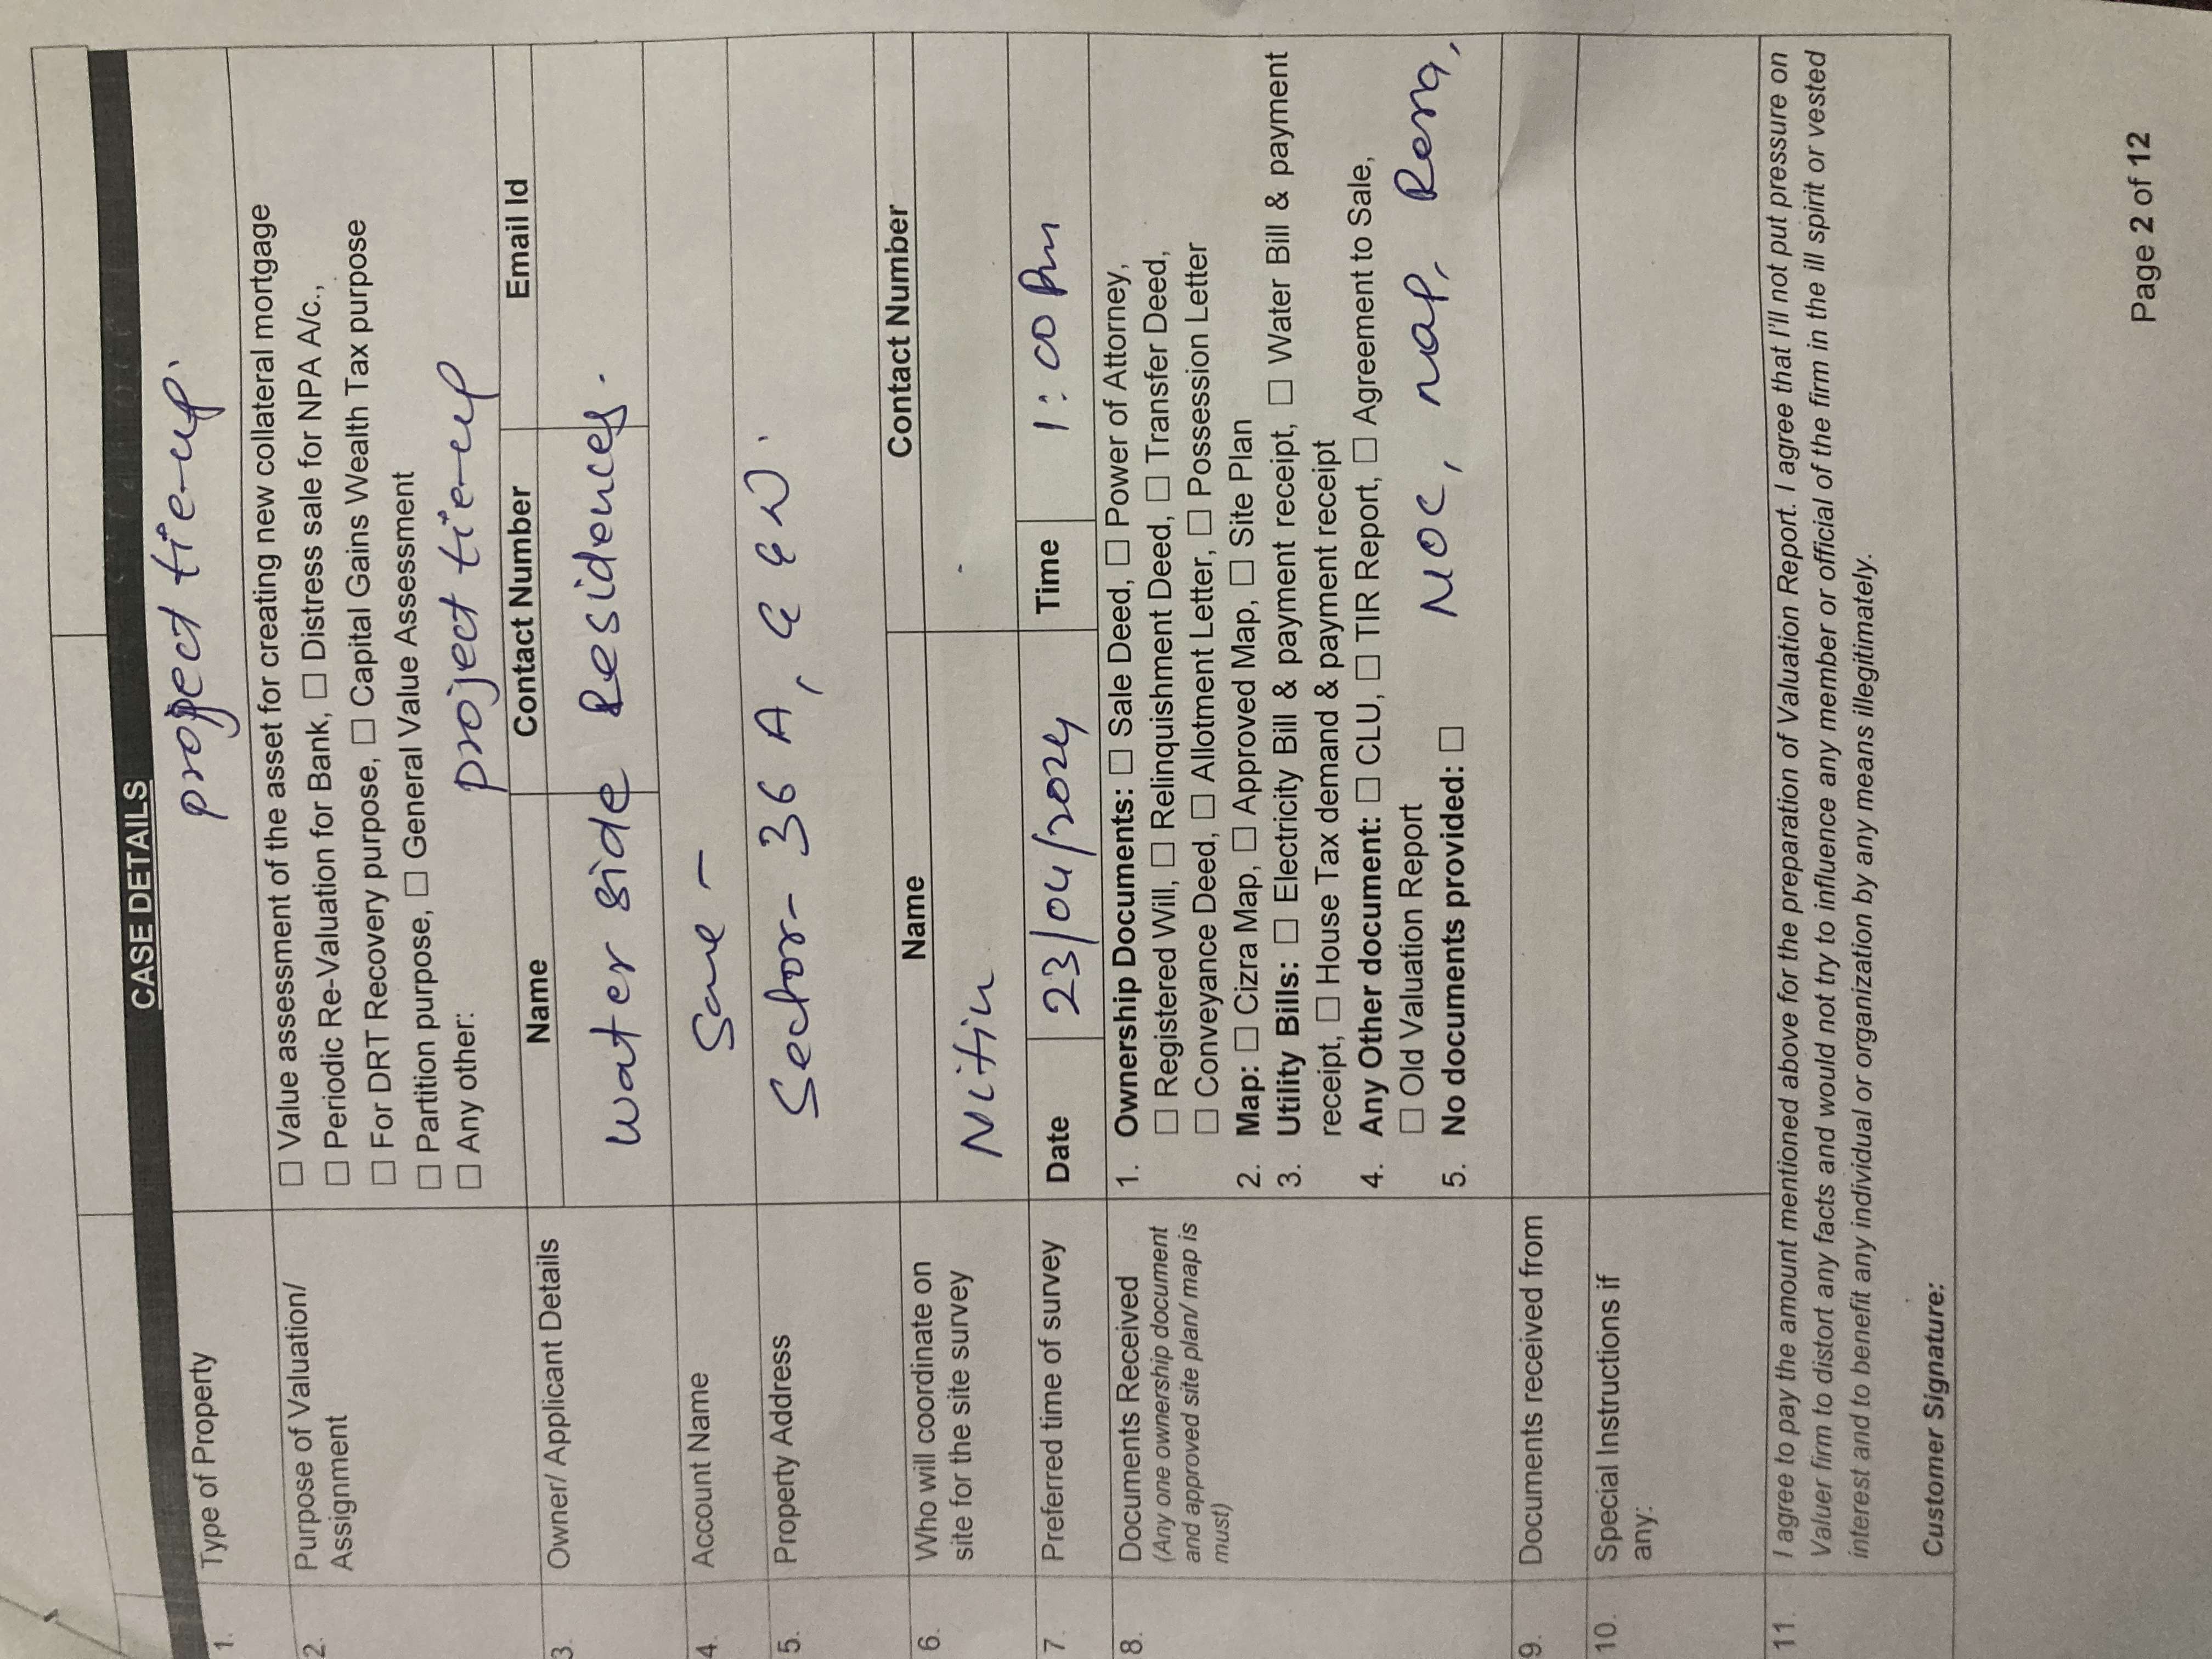 CASE DETAILS
1. Type of Property project tie-up.
2. Purpose of Valuation/ Assignment
☐ Value assessment of the asset for creating new collateral mortgage
☐ Periodic Re-Valuation for Bank, ☐ Distress sale for NPA A/c.,
☐ For DRT Recovery purpose, ☐ Capital Gains Wealth Tax purpose
☐ Partition purpose, ☐ General Value Assessment
☐ Any other: project tie-up
3. Owner/ Applicant Details
Name Contact Number Email Id
Water side Residences.
4. Account Name Same -
5. Property Address Sector- 36 A, G G N.
6. Who will coordinate on
site for the site survey
Name Contact Number
Nitin
7. Preferred time of survey Date 23/04/2024 Time 1:00 Pm
8. Documents Received
(Any one ownership document
and approved site plan/ map is
must)
1. Ownership Documents: ☐ Sale Deed, ☐ Power of Attorney,
☐ Registered Will, ☐ Relinquishment Deed, ☐ Transfer Deed,
☐ Conveyance Deed, ☐ Allotment Letter, ☐ Possession Letter
2. Map: ☐ Cizra Map, ☐ Approved Map, ☐ Site Plan
3. Utility Bills: ☐ Electricity Bill & payment receipt, ☐ Water Bill & payment
receipt, ☐ House Tax demand & payment receipt
4. Any Other document: ☐ CLU, ☐ TIR Report, ☐ Agreement to Sale,
☐ Old Valuation Report
5. No documents provided: ☐ NOC, map, Rera,
9. Documents received from
10. Special Instructions if
any:
11. I agree to pay the amount mentioned above for the preparation of Valuation Report. I agree that I'll not put pressure on
Valuer firm to distort any facts and would not try to influence any member or official of the firm in the ill spirit or vested
interest and to benefit any individual or organization by any means illegitimately.
Customer Signature:
Page 2 of 12